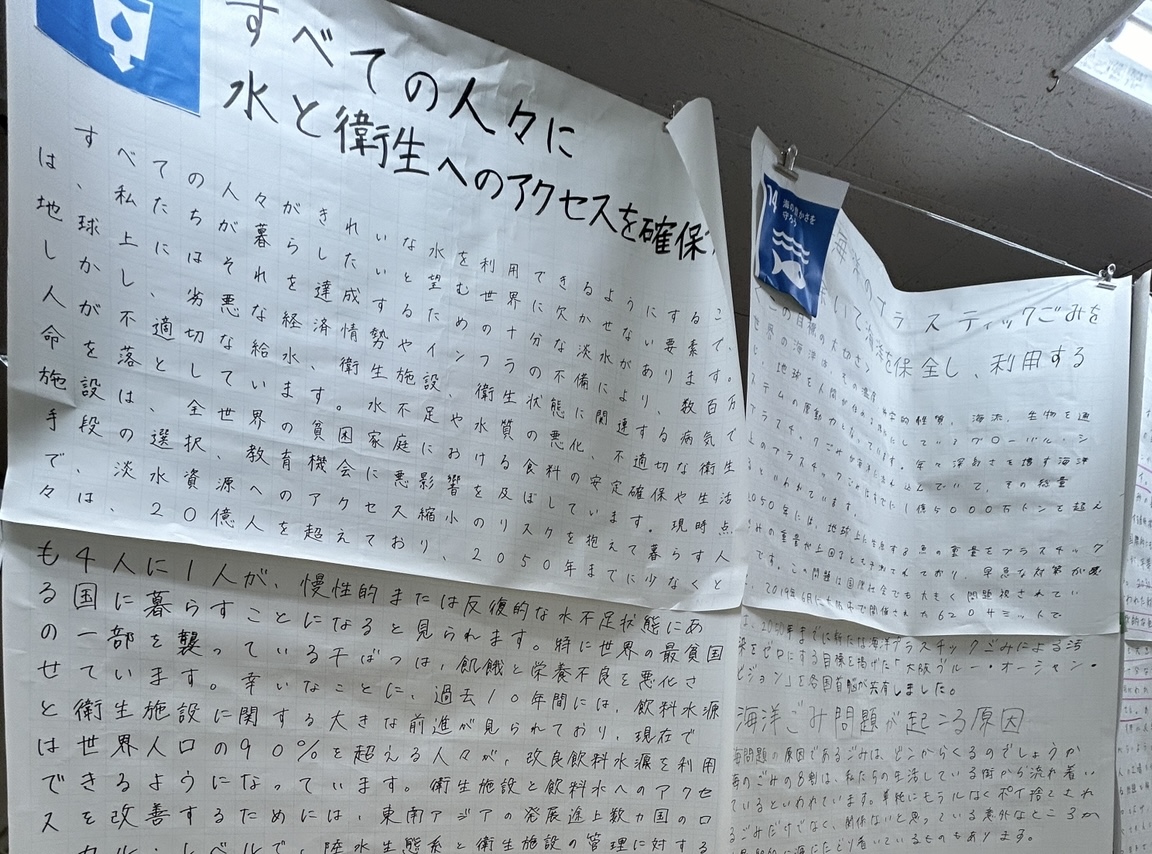 すべての人々に
水と衛生へのアクセスを確保
すべての人々がきれいな水を利用できるようにするこ
は、私たちが暮らしたいと望む世界に欠かせない要素で、
地球上にはそれを達成するための十分な淡水があります。
しかし、劣悪な経済情勢やインフラの不備により、数百万
人が不適切な給水、衛生施設、衛生状態に関連する病気で
命を落としています。水不足や水質の悪化、不適切な衛生
施設は、全世界の貧困家庭における食料の安定確保や生活
手段の選択、教育機会に悪影響を及ぼしています。現時点
で、淡水資源へのアクセス縮小のリスクを抱えて暮らす人
々は、20億人を超えており、2050年までに少なくと
も4人に1人が、慢性的または反復的な水不足状態にあ
る国に暮らすことになると見られます。特に世界の最貧国
の一部を襲っている干ばつは、飢餓と栄養不良を悪化さ
せています。幸いなことに、過去10年間には、飲料水源
と衛生施設に関する大きな前進が見られており、現在で
は世界人口の90%を超える人々が、改良飲料水源を利用
できるようになっています。衛生施設と飲料水へのアクセ
スを改善するためには、東南アジアの発展途上数カ国のロ
カル・レベルで、陸水生態系と衛生施設の管理に対する
14 海の豊かさを
守ろう
のプラスティックごみを
いて海洋を保全し、利用する
この目標の大切さ
世界の海洋は、その温度、海流、生物を通
じ、地球を人間が住める しているグローバル・シ
ステムの原動力となっています。年々深刻さを増す海洋
プラスチックごみ 込んでいて、その総量
上のプラスチックごみはすでに1億5000万トンを超え
るといわれています。
2050年には、地球上に生息する魚の重量をプラスチック
ごみの重量が上回ると 早急な対策が必
です。この問題は国際社会でも大きく問題視されてい
、2019年6月に大阪で開催されたG20サミットで
は、2050年までに新たな海洋プラスチックごみによる汚
染をゼロにする目標を掲げた「大阪ブルー・オーシャン・
ビジョン」を各国首脳が共有しました。
海洋ごみ問題が起こる原因
海問題の原因であるごみは、どこからくるのでしょうか
海のごみの8割は、私たちの生活している街から流れ着い
ているといわれています。単純にモラルなくポイ捨てされ
るごみだけでなく、関係ないと思っている意外なところか
に海にたどり着いているものもあります。